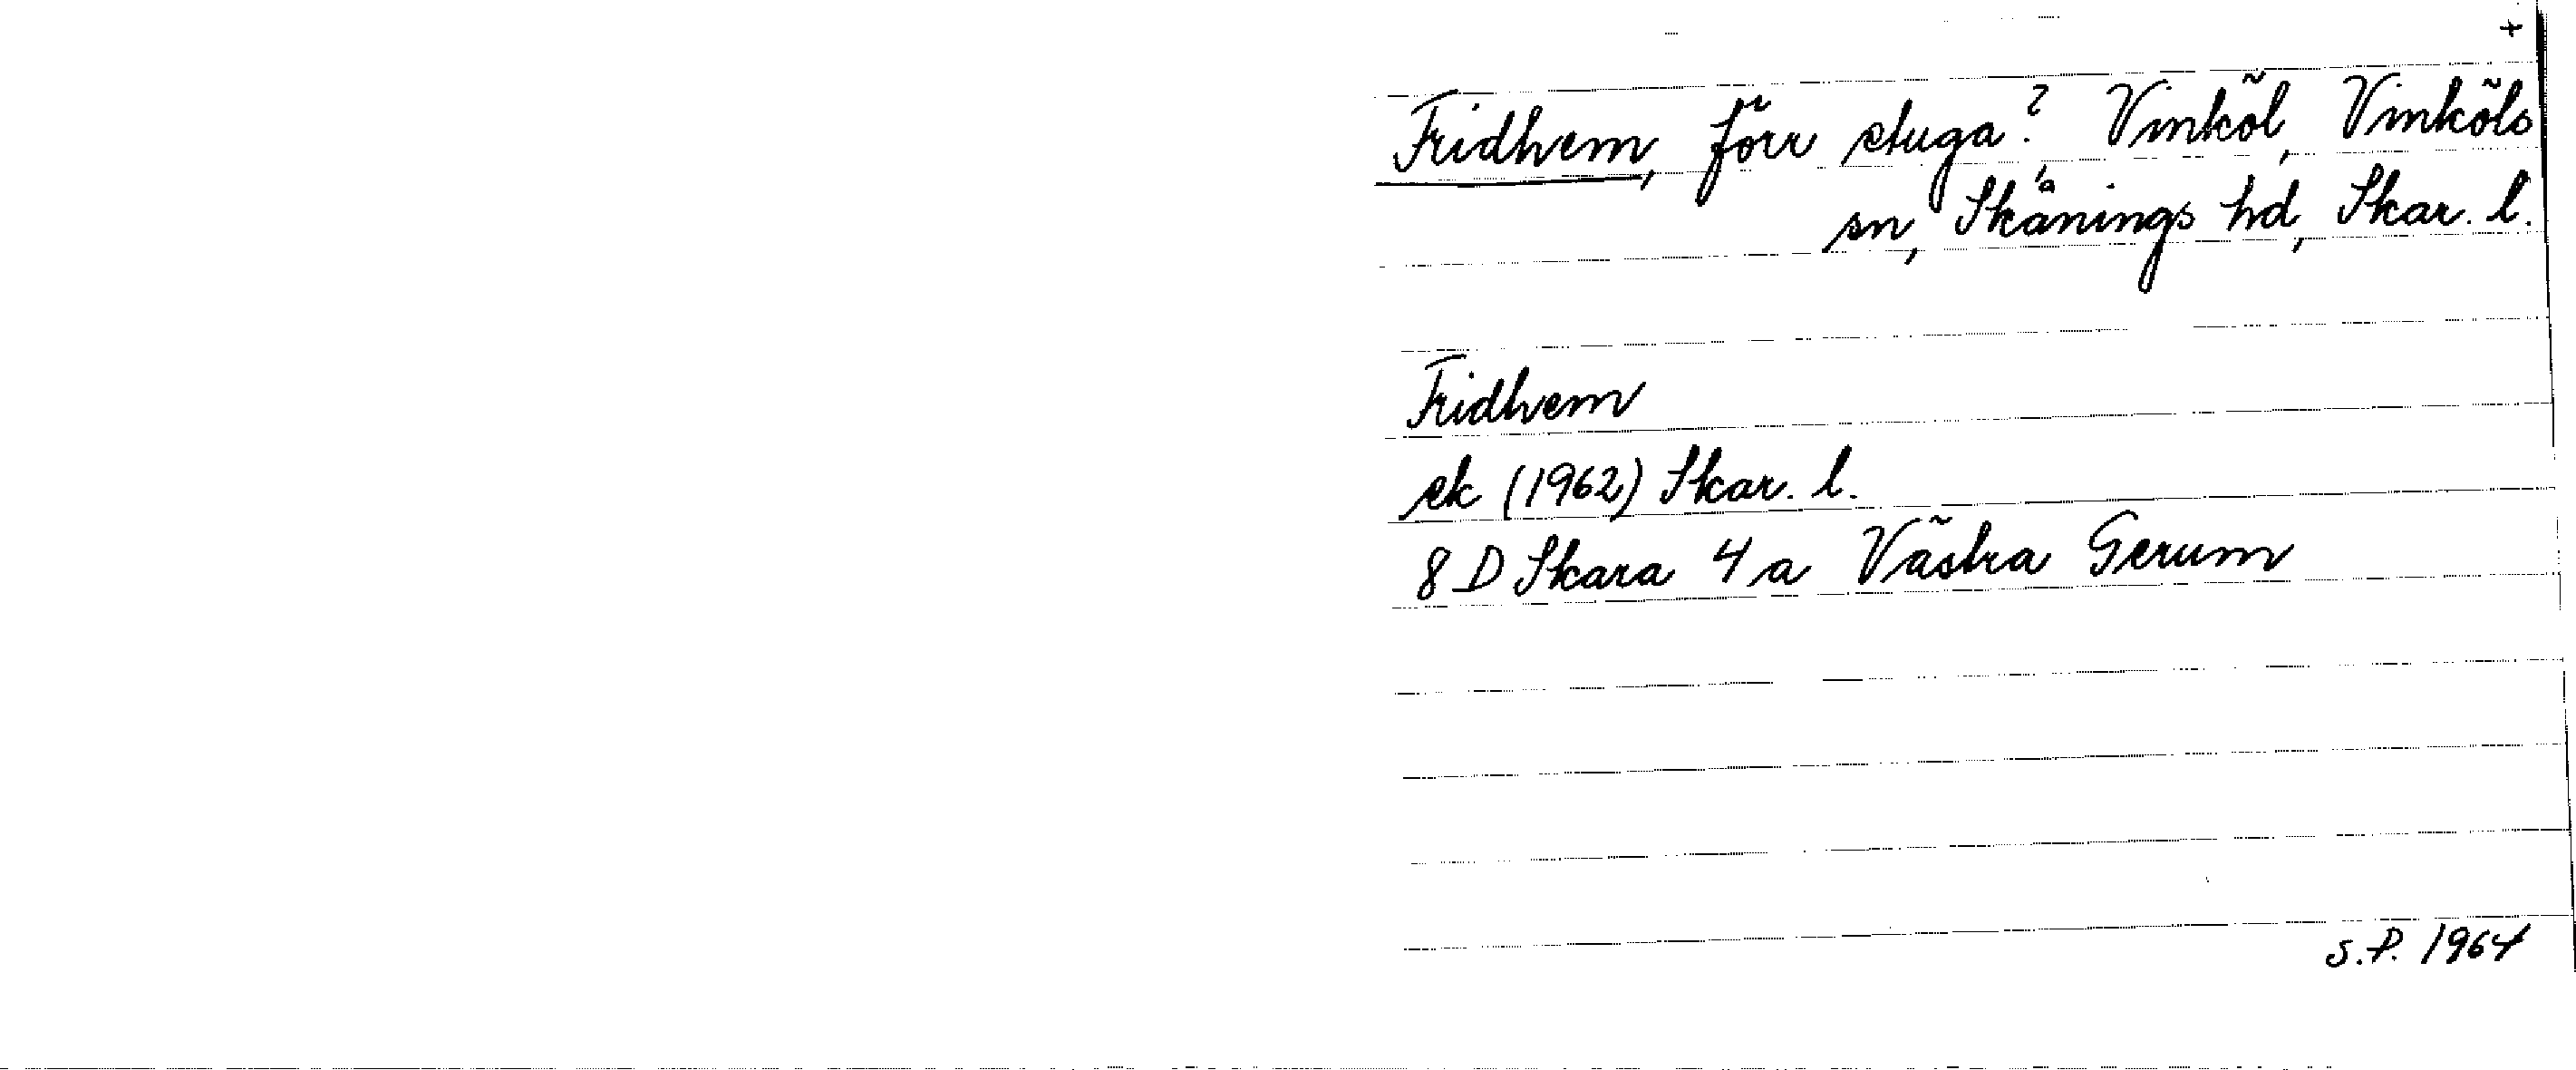 +
Fridhem, förr stuga? Vinköl, Vinköls
sn, Skånings hd, Skar. l.
Fridhem
ek (1962) Skar. l.
8 D Skara 4 a Västra Gerum
S.P. 1964